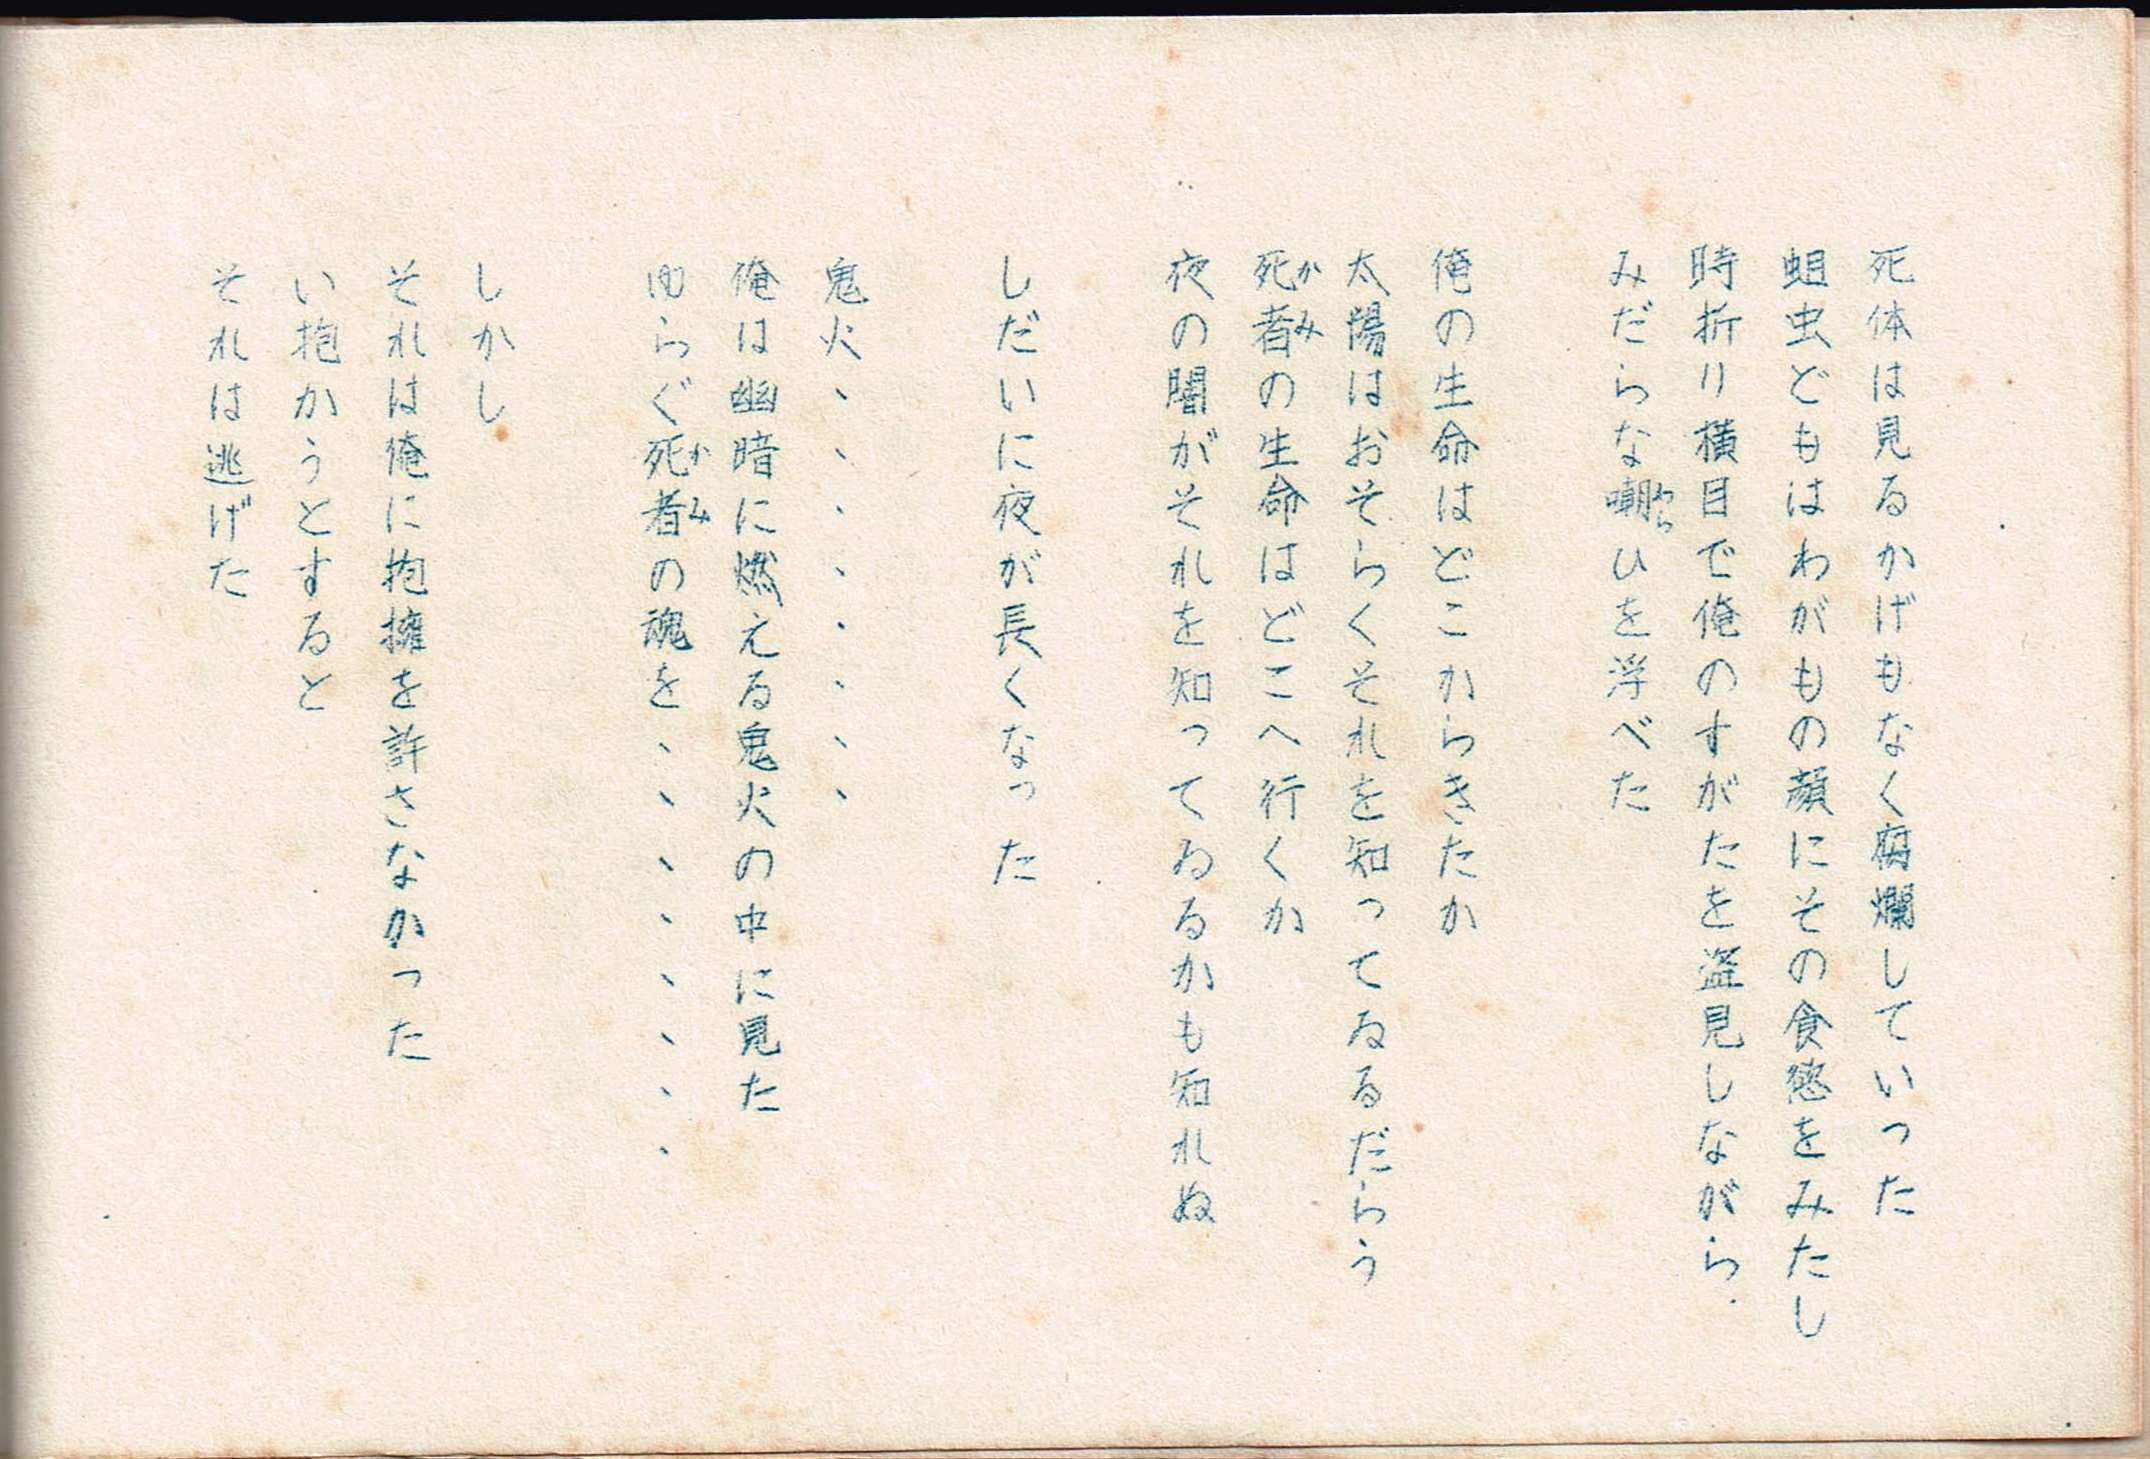 死体は見るかげもなく腐爛していった
蛆虫どもはわがもの顔にその食慾をみたし
時折り横目で俺のすがたを盗見しながら
みだらな嘲ひを浮べた
わら
俺の生命はどこからきたか
太陽はおそらくそれを知ってゐるだらう
死者の生命はどこへ行くか
かみ
夜の闇がそれを知ってゐるかも知れぬ
しだいに夜が長くなった
鬼火、、、、、、、、
俺は幽暗に燃える鬼火の中に見た
ゆらぐ死者の魂を、、、、、、、、
かみ
しかし
それは俺に抱擁を許さなかった
い抱かうとすると
それは逃げた